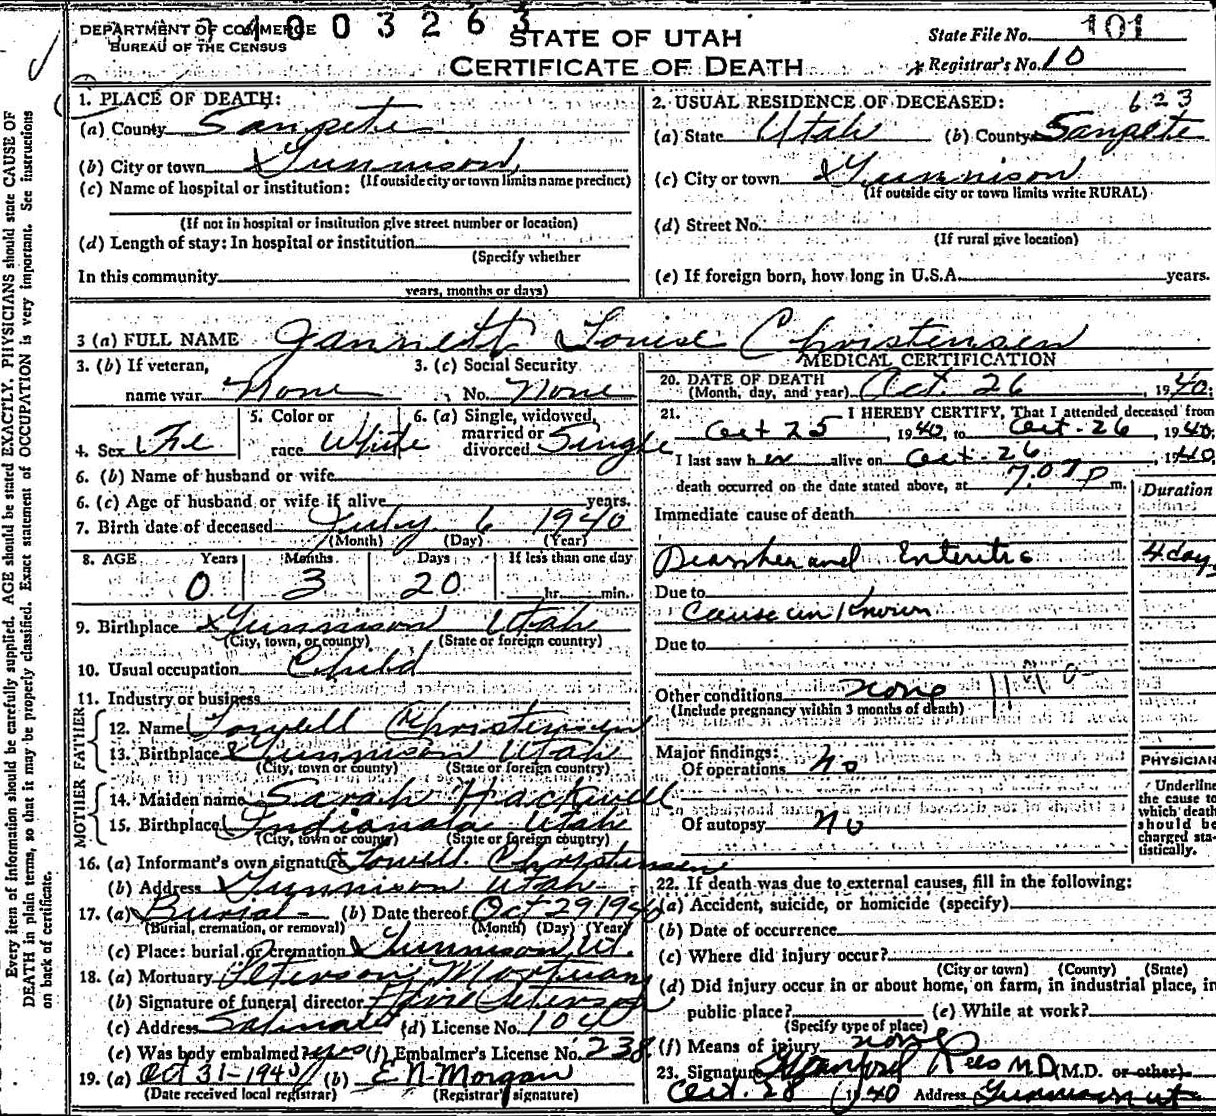 DEPARTMENT OF COMMERCE
BUREAU OF THE CENSUS
4003263
STATE OF UTAH
CERTIFICATE OF DEATH
State File No. 101
Registrar's No. 10
Every item of information should be carefully supplied. AGE should be stated EXACTLY. PHYSICIANS should state CAUSE OF
DEATH in plain terms, so that it may be properly classified. Exact statement of OCCUPATION is very important. See instructions
on back of certificate.
1. PLACE OF DEATH:
(a) County Sanpete
(b) City or town Gunnison
(If outside city or town limits name precinct)
(c) Name of hospital or institution:
(If not in hospital or institution give street number or location)
(d) Length of stay: In hospital or institution
(Specify whether
In this community
years, months or days)
2. USUAL RESIDENCE OF DECEASED: 623
(a) State Utah (b) County Sanpete
(c) City or town Gunnison
(If outside city or town limits write RURAL)
(d) Street No.
(If rural give location)
(e) If foreign born, how long in U.S.A. years.
3 (a) FULL NAME Jannett Louise Christensen
3. (b) If veteran, name war None
3. (c) Social Security No. None
4. Sex Fe
5. Color or race White
6. (a) Single, widowed, married or divorced Single
6. (b) Name of husband or wife
6. (c) Age of husband or wife if alive years.
7. Birth date of deceased July 6 1940
(Month) (Day) (Year)
8. AGE Years Months Days If less than one day
0 3 20 hr. min.
9. Birthplace Gunnison Utah
(City, town, or county) (State or foreign country)
10. Usual occupation Child
11. Industry or business
FATHER
12. Name Lowell Christensen
13. Birthplace Gunnison Utah
(City, town or county) (State or foreign country)
MOTHER
14. Maiden name Sarah Hackwell
15. Birthplace Indianola Utah
(City, town or county) (State or foreign country)
16. (a) Informant's own signature Lowell Christensen
(b) Address Gunnison Utah
17. (a) Burial (b) Date thereof Oct 29 1940
(Burial, cremation, or removal) (Month) (Day) (Year)
(c) Place: burial or cremation Gunnison Ut.
18. (a) Mortuary Peterson Mortuary
(b) Signature of funeral director Peterson
(c) Address (d) License No. 104
(e) Was body embalmed? yes (f) Embalmer's License No. 238
19. (a) Oct 31-1940 (b) E N Morgan
(Date received local registrar) (Registrar's signature)
MEDICAL CERTIFICATION
20. DATE OF DEATH
(Month, day, and year) Oct. 26 1940
21. I HEREBY CERTIFY, That I attended deceased from
Oct 25, 1940, to Oct. 26, 1940;
I last saw her alive on Oct. 26 1940,
death occurred on the date stated above, at 7:07 p m.
Duration
Immediate cause of death
Diarrhea and Enteritis 4 days
Due to
Cause unknown
Due to
Other conditions none
(Include pregnancy within 3 months of death)
Major findings:
Of operations no
Of autopsy no
PHYSICIAN
Underline
the cause to
which death
should be
charged sta-
tistically.
22. If death was due to external causes, fill in the following:
(a) Accident, suicide, or homicide (specify)
(b) Date of occurrence
(c) Where did injury occur?
(City or town) (County) (State)
(d) Did injury occur in or about home, on farm, in industrial place, in
public place? (e) While at work?
(Specify type of place)
(f) Means of injury none
23. Signature Stanford Rees MD (M.D. or other)
Oct. 28 1940 Address Gunnison ut